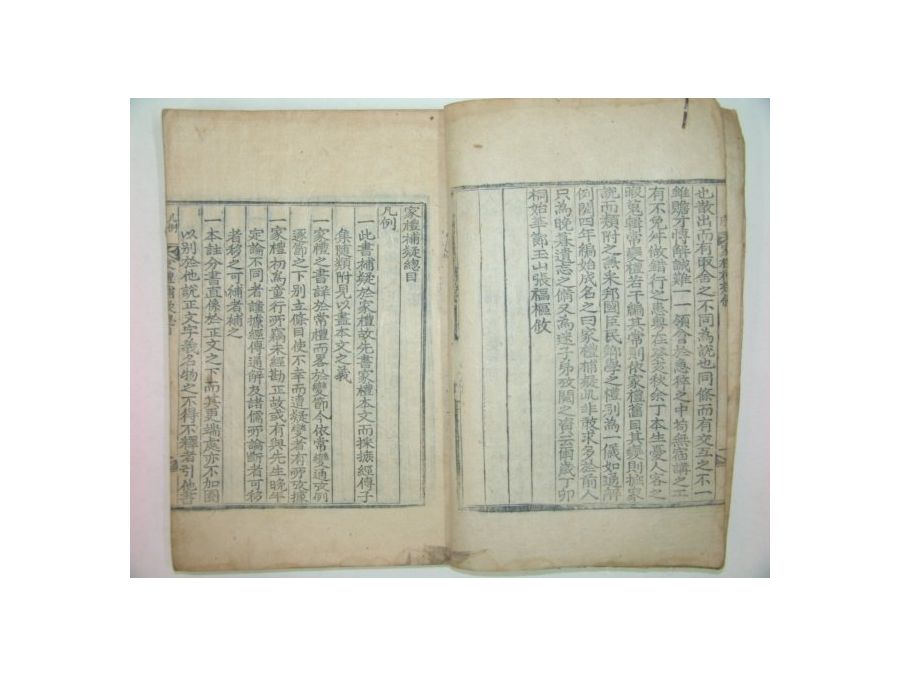 也散出而有取舍之不同為說也同條而有交互之不一
雖贍才博識難一一領會於急稡之中苟無宿講之工
有不免乎做錯行之患粤在癸亥秋余丁本生憂人客之
暇蒐輯常變禮若干編其常則依家禮舊目其變則據家
說而類附之至於邦國臣民鄕學之禮別為一儀如通解
例閱四年編始成名之曰家禮補疑疏非敢求多於前人
只為晩暮遺忘之備又為迷子弟攷閱之資云爾歲丁卯
桐始華節玉山張福樞敘
家禮補疑總目
凡例
一此書補疑於家禮故先書家禮本文而採摭經傳子
集隨類附見以盡本文之義
一家禮之書詳於常禮而畧於變節今依常變通攷例
逐節之下別立條目使不幸而遭疑變者有所攷據
一家禮初為童行所竊未經勘正故或有與先生晩年
定論不同者謹據經傳通解及諸儒所論斷者可移
者移之可補者補之
一本註分書直條於正文之下而其更端處亦不加圈
以別於他說正文字義名物之不得不釋者引他書
凡例
家禮補疑